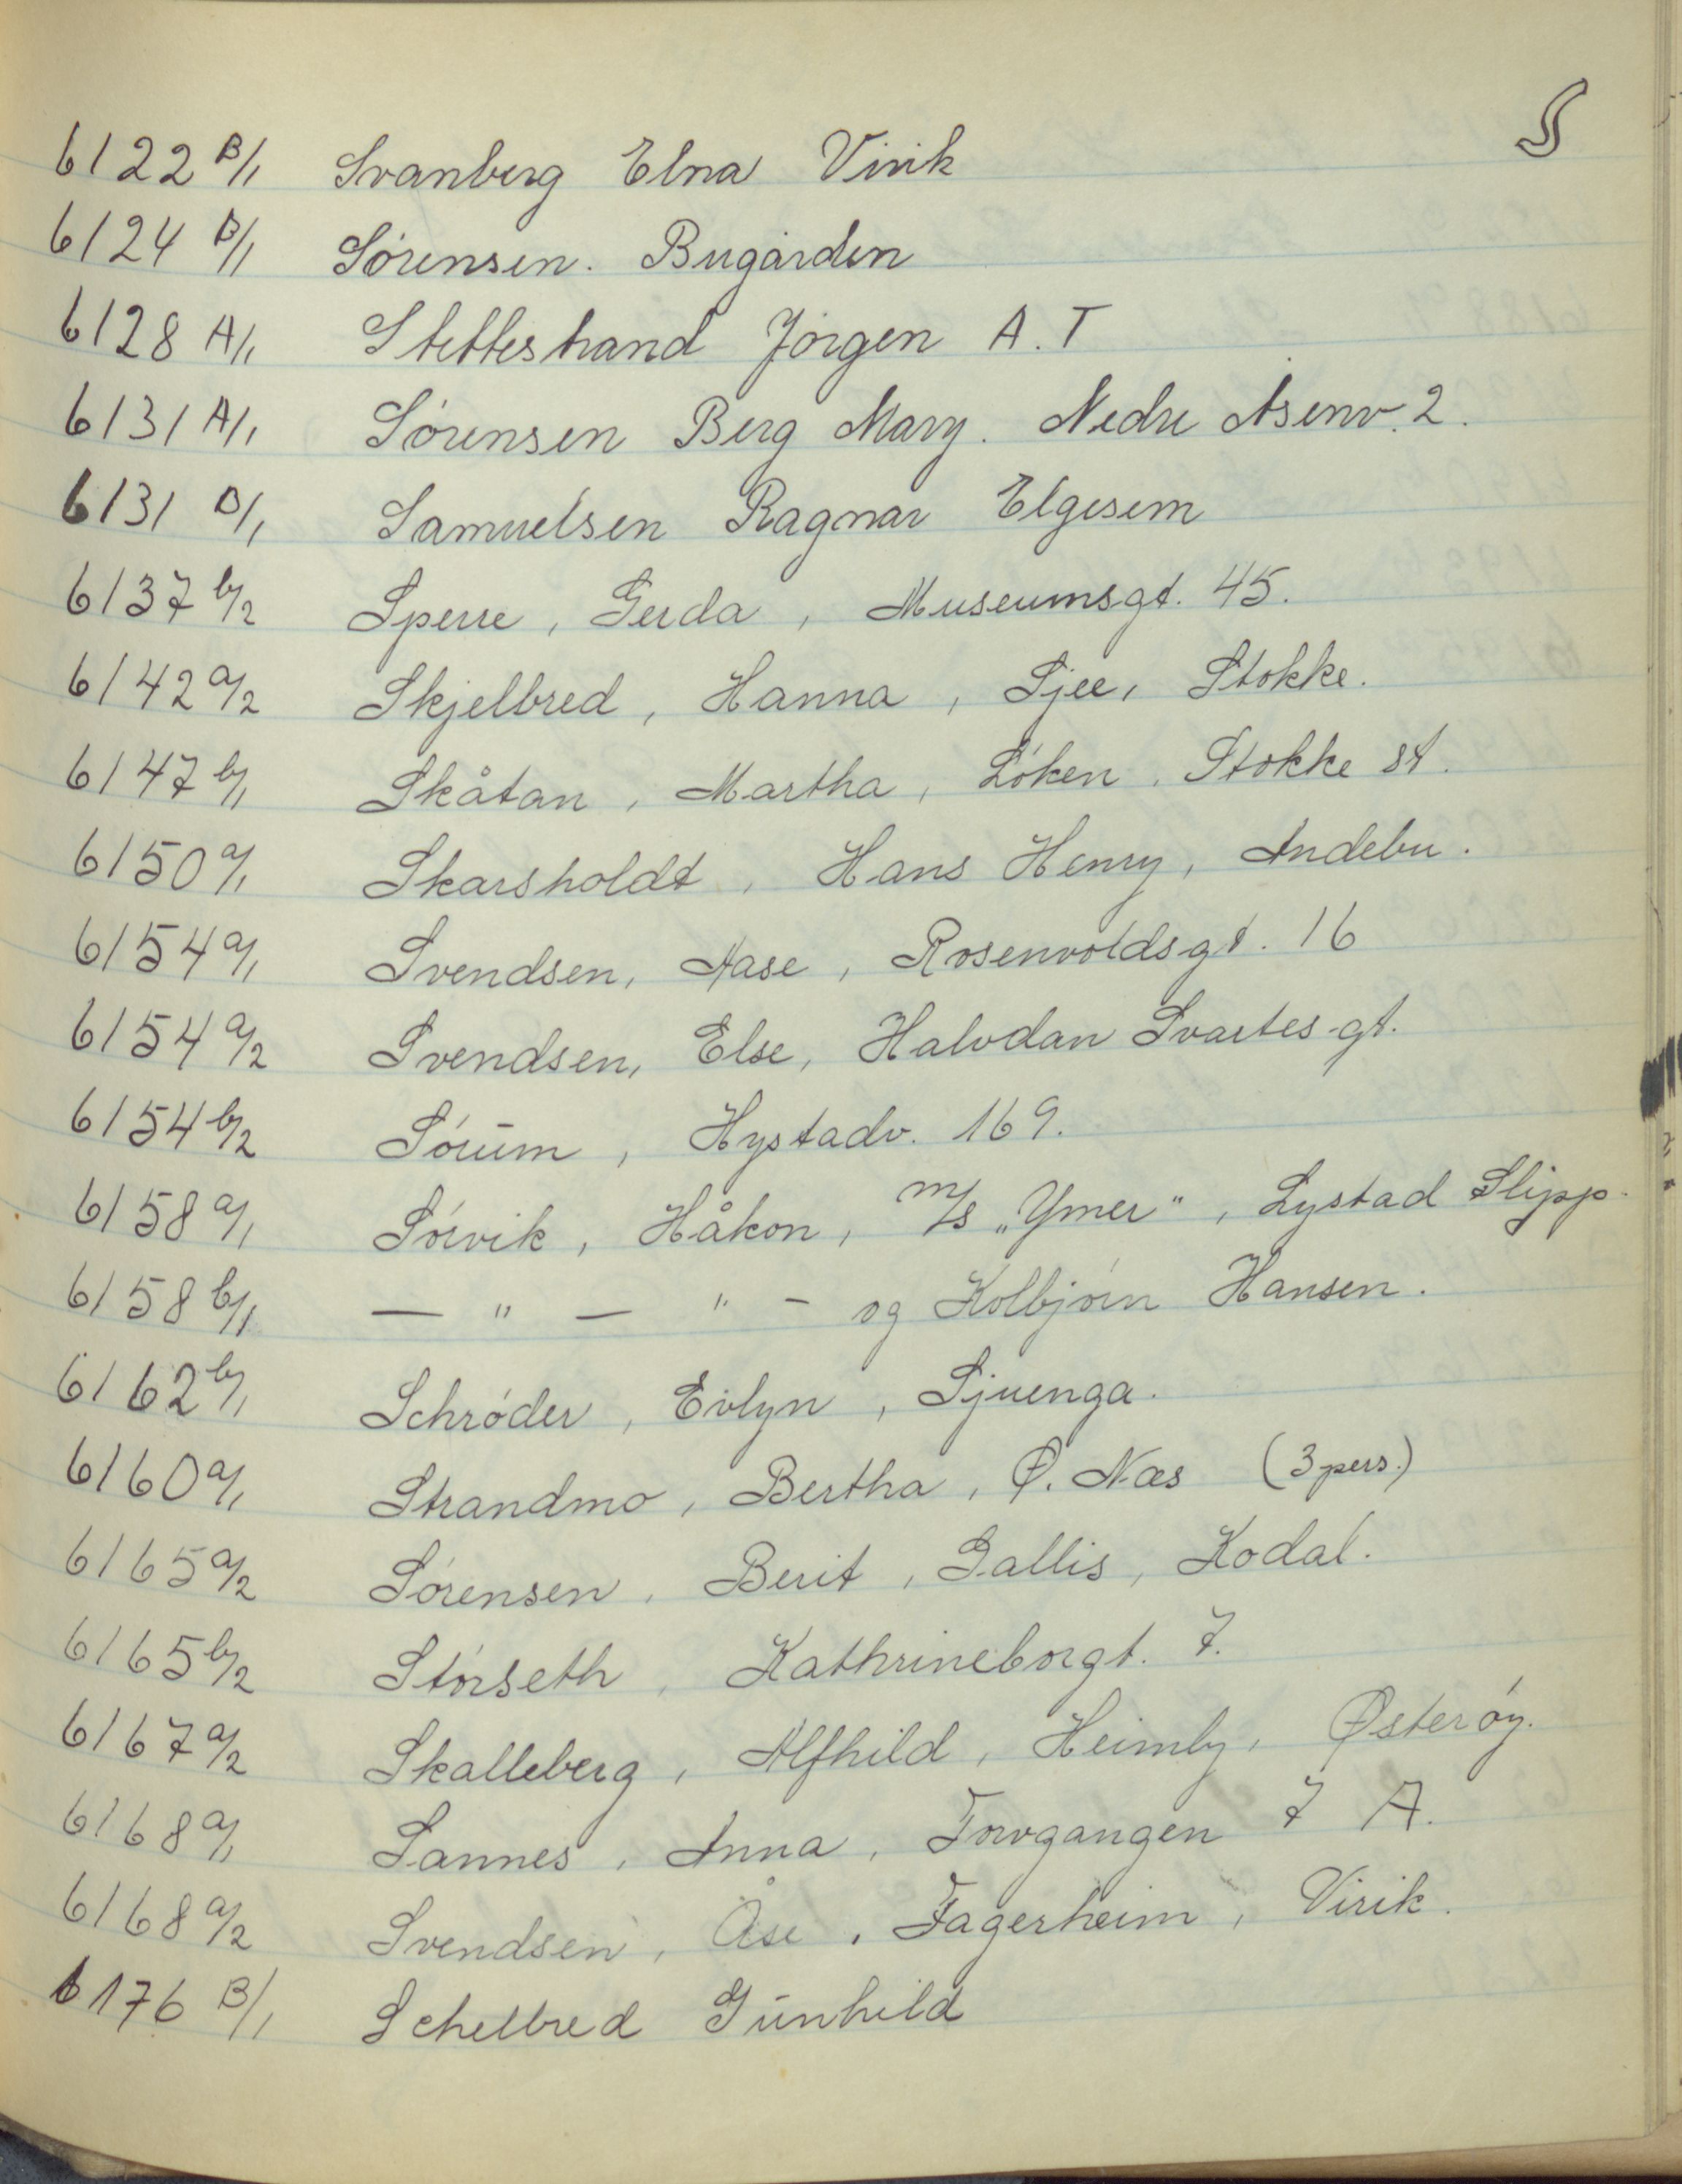 S
6122 B/1 Svanberg Elna Virik
6124 B/1 Sørensen. Bugården
6128 A/1 Stettestrand Jørgen A.T
6131 A/1 Sørensen Berg Mary. Nedre Åsenv. 2.
6131 B/1 Samuelsen Ragnar Elgesem
6137 b/2 Sperre, Gerda, Museumsgt. 45.
6142 a/2 Skjelbred, Hanna, Sjee, Stokke.
6147 b/1 Skåtan, Martha, Løken, Stokke st.
6150 a/1 Skarsholdt, Hans Henry, Andebu.
6154 a/1 Svendsen, Aase, Rosenvoldsgt. 16
6154 a/2 Svendsen, Else, Halvdan Svartes-gt.
6154 b/2 Sórum, Hystadv. 169.
6158 a/1 Sórvik, Håkon, m/s „Ymer", Lystad Slipp.
6158 b/1 — " — " - og Kolbjórn Hansen.
6162 b/1 Schróder, Evlyn, Sjuenga.
6160 a/1 Strandmo, Bertha, Ø. Næs (3 pers.)
6165 a/2 Sórensen, Berit, Gallis, Kodal.
6165 b/2 Stórseth, Kathrineborgt. 7.
6167 a/2 Skalleberg, Alfhild, Heimly, Østerøy.
6168 a/1 Sannes, Anna, Torvgangen 7 A.
6168 a/2 Svendsen, Åse, Fagerheim, Virik.
6176 B/1 Schelbred Gunhild